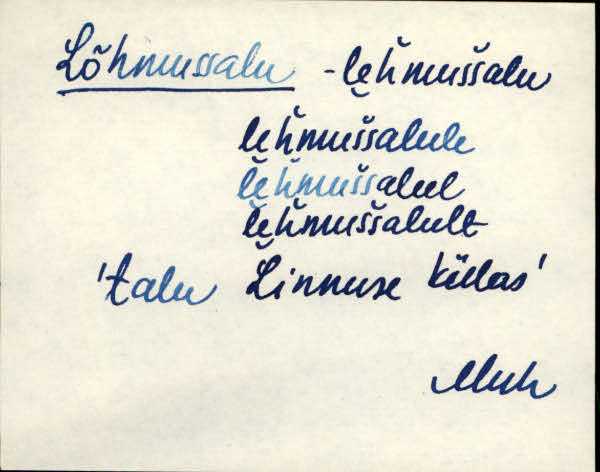 Lõhmussalu - lȩȟmuššalu
lȩȟmuššalule
lȩȟmuššalul
lȩȟmuššalult
'talu Linnuse külas'
Muh